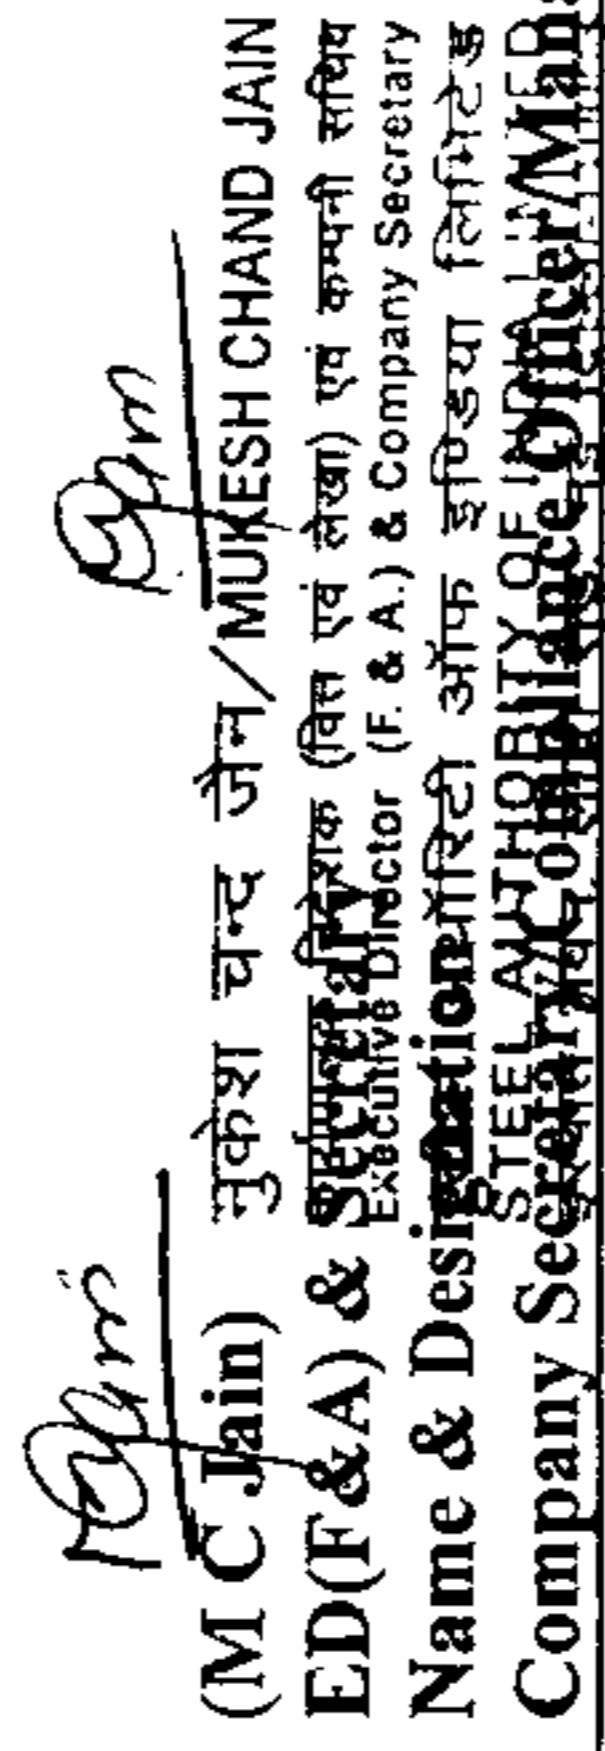 (M C Jain)
ED(F&A) & Secretary
Name & Designation
Company Secretary/Compliance Officer/Mana
मुकेश चन्द जैन/MUKESH CHAND JAIN
निदेशक (वित्त एवं लेखा) एवं कम्पनी सचिव
Executive Director (F. & A.) & Company Secretary
ऑफ इण्डिया लिमिटेड
STEEL AUTHORITY OF INDIA LIMITED